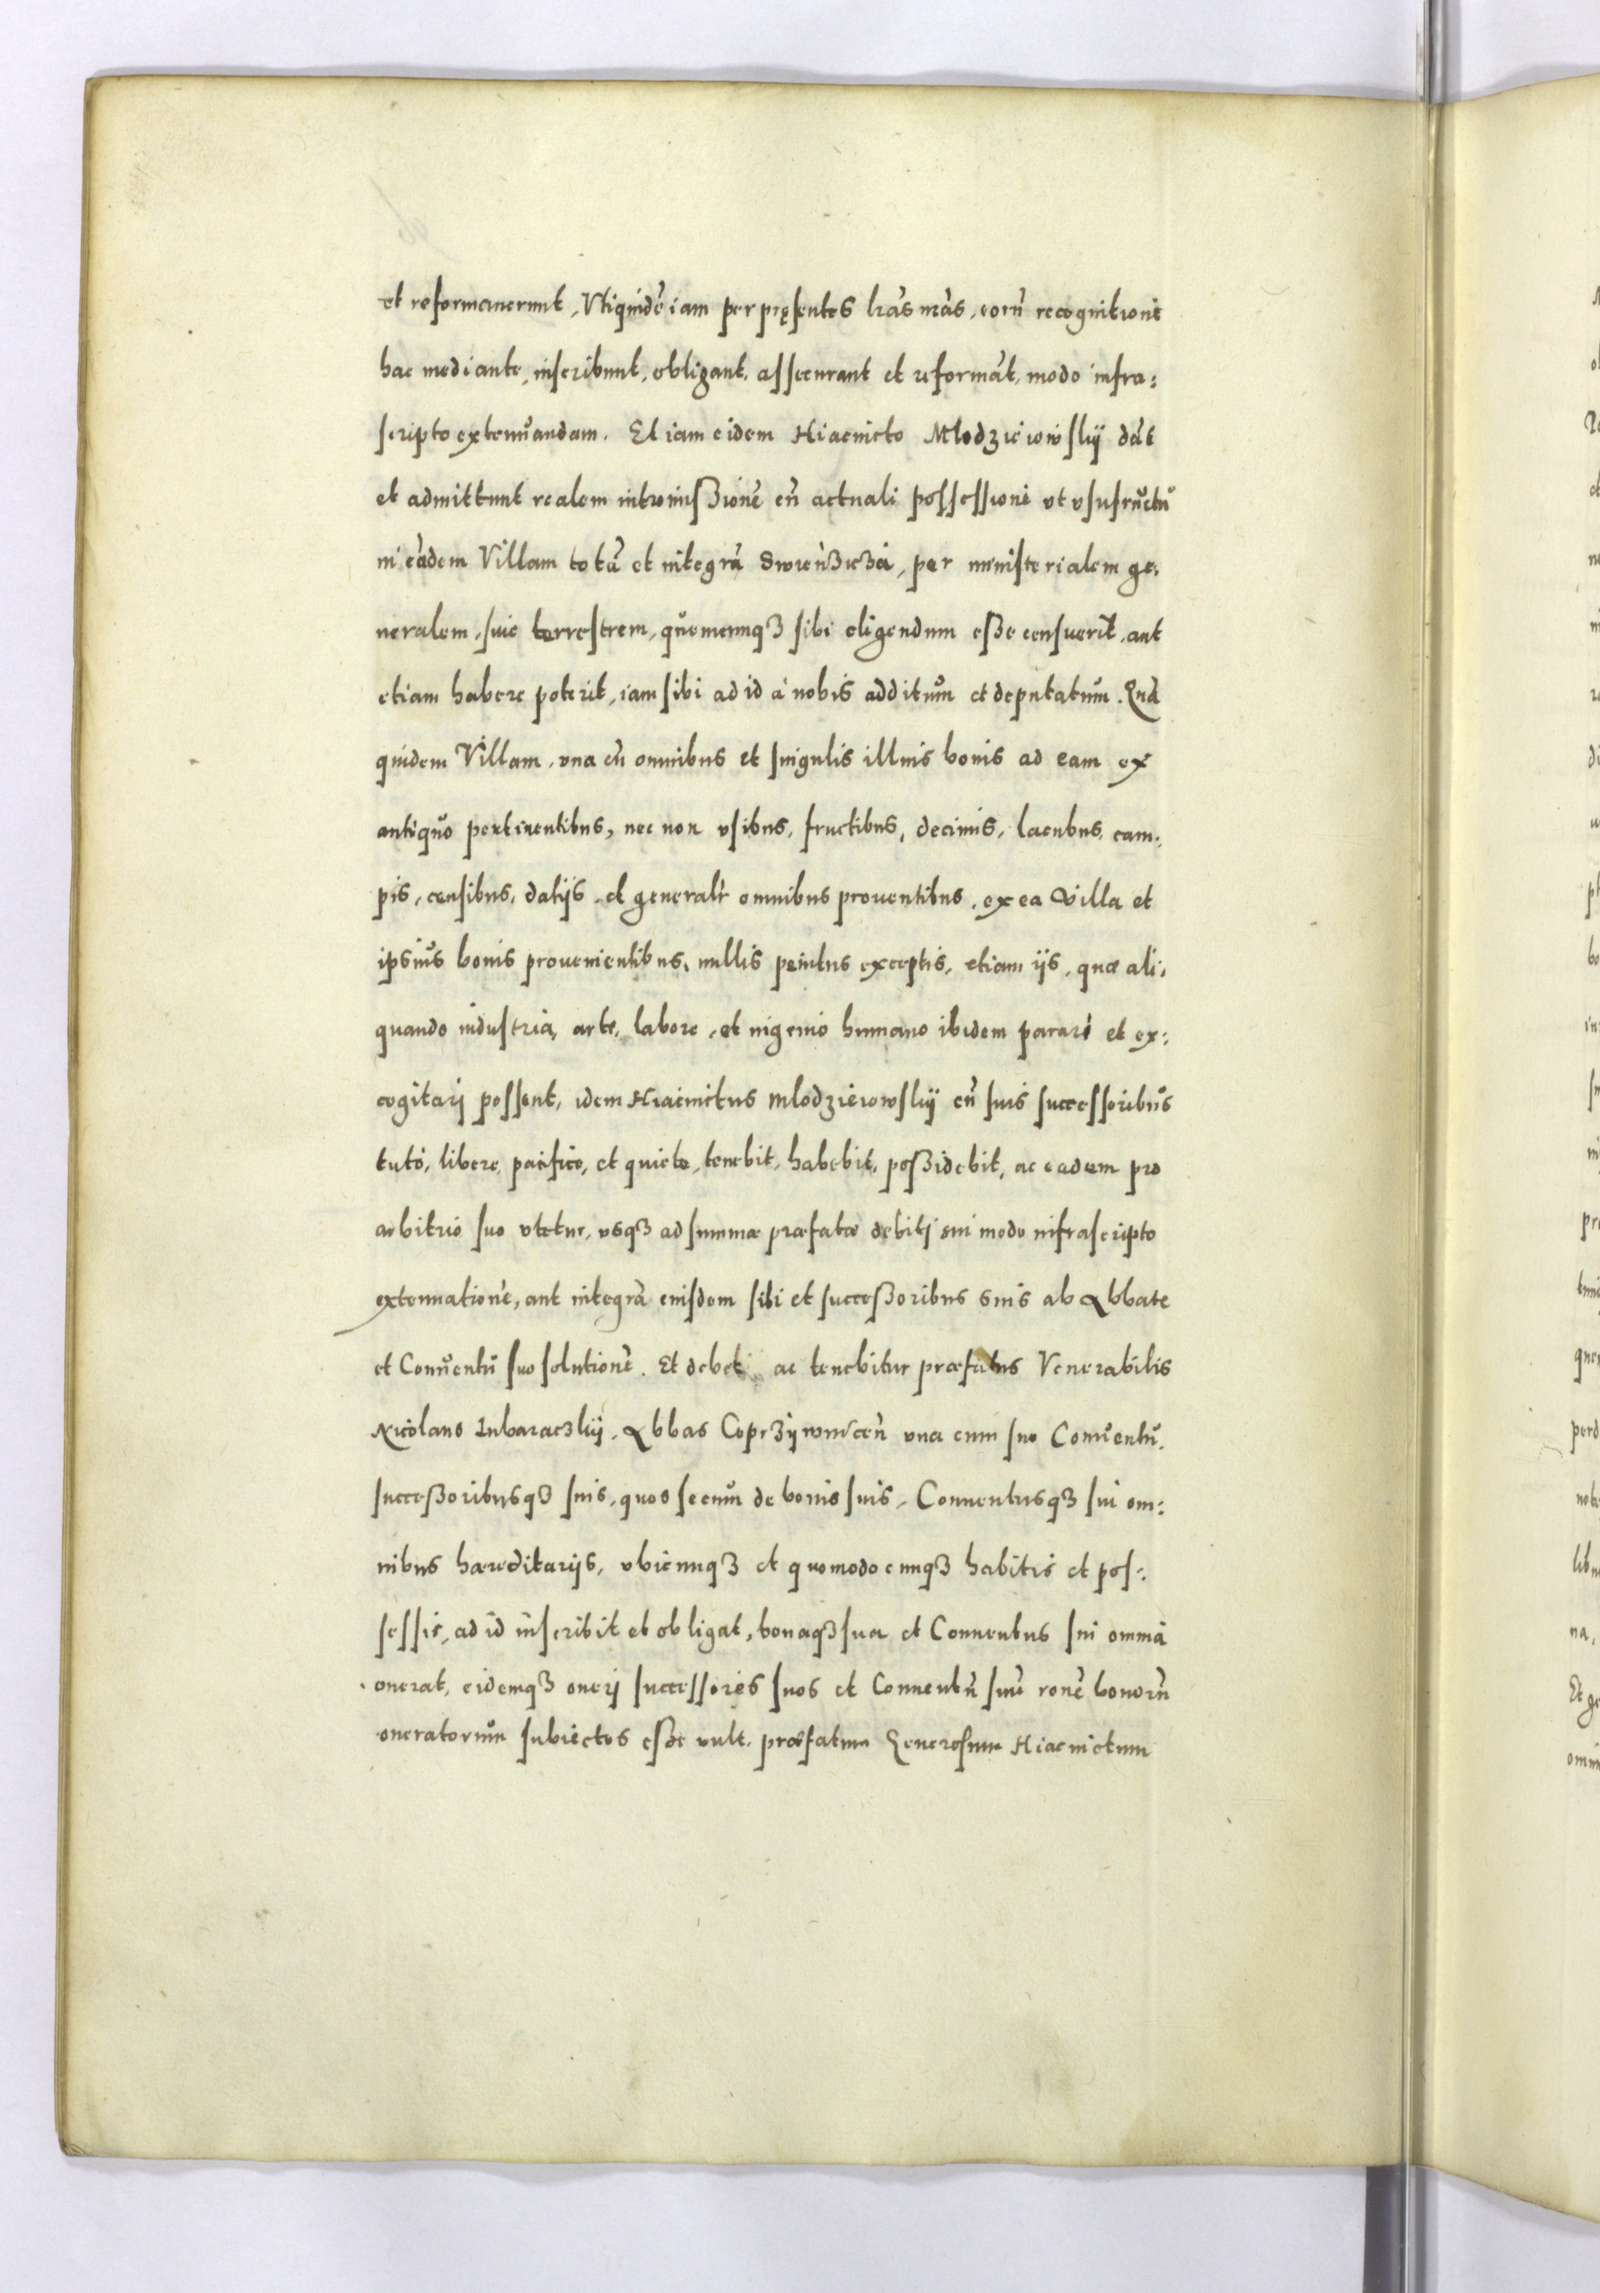 et reformauerunt, Vtiquidē iam per pręsentes lr̃as nr̃as, eorū recognitione
hac mediante, inscribunt, obligant, assecurant et reformāt, modo infra:
scripto extenuandam. Et iam eidem Hiacincto Mlodzieiowskij dāt
et admittunt realem intromißionē cū actuali possessione et vsufructu
in eādem Villam totā et integrā per ministerialem ge:
neralem, siue terrestrem, quemcunqȝ sibi eligendum eße censuerit, aut
etiam habere poterit, iam sibi ad id à nobis additum et deputatum. Quā
quidem Villam, vna cū omnibus et singulis illius bonis ad eam ex
antiquo pertinentibus, nec non vsibus, fructibus, decimis, lacubus, cam:
pis, censibus, datijs, et generalr̃ omnibus prouentibus, ex ea Villa et
ipsius bonis prouenientibus, nullis penitus exceptis, etiam ijs, quæ ali:
quando industria, arte, labore, et ingenio humano ibidem parari et ex:
cogitarj possent, idem Hiacinctus Mlodzieiowskij cū suis successoribus
tuto, libere, pacifice, et quiete, tenebit, habebit, poßidebit, ac eadem pro
arbitrio suo vtetur, vsqȝ ad summæ præfatæ debitj sui modo infrascripto
extenuationē, aut integrā eiusdem sibi et succeßoribus suis ab Abbate
et Conuentu suo solutionē. Et debet ac tenebitur præfatus Venerabilis
Nicolaus Abbas una cum suo Conuentu,
succeßoribusqȝ suis, quos secum de bonis suis, Conuentusqȝ sui om:
nibus hæreditarijs, vbicunqȝ et quomodocunqȝ habitis et pos:
sessis, ad id inscribit et obligat, bonaqȝ sua et Conuentus sui omnia
onerat, eidemqȝ onerj successores suos et Conuentū suū ronē bonorū
oneratorum subiectos eße vult, præfatum Generosum Hiacinctum